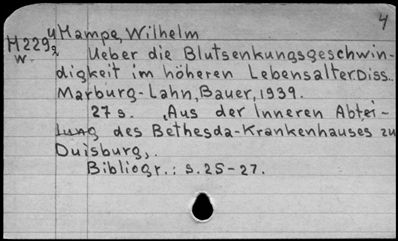 4
M229u2 Hampe, Wilhelm
W. Ueber die Blutsenkungsgeschwin-
digkeit im höheren Lebensalter Diss..
Marburg-Lahn, Bauer, 1939.
27 s. "Aus der Inneren Abtei-
lung des Bethesda-Krankenhauses zu
Duisburg,.
Bibliogr.: s.25-27.